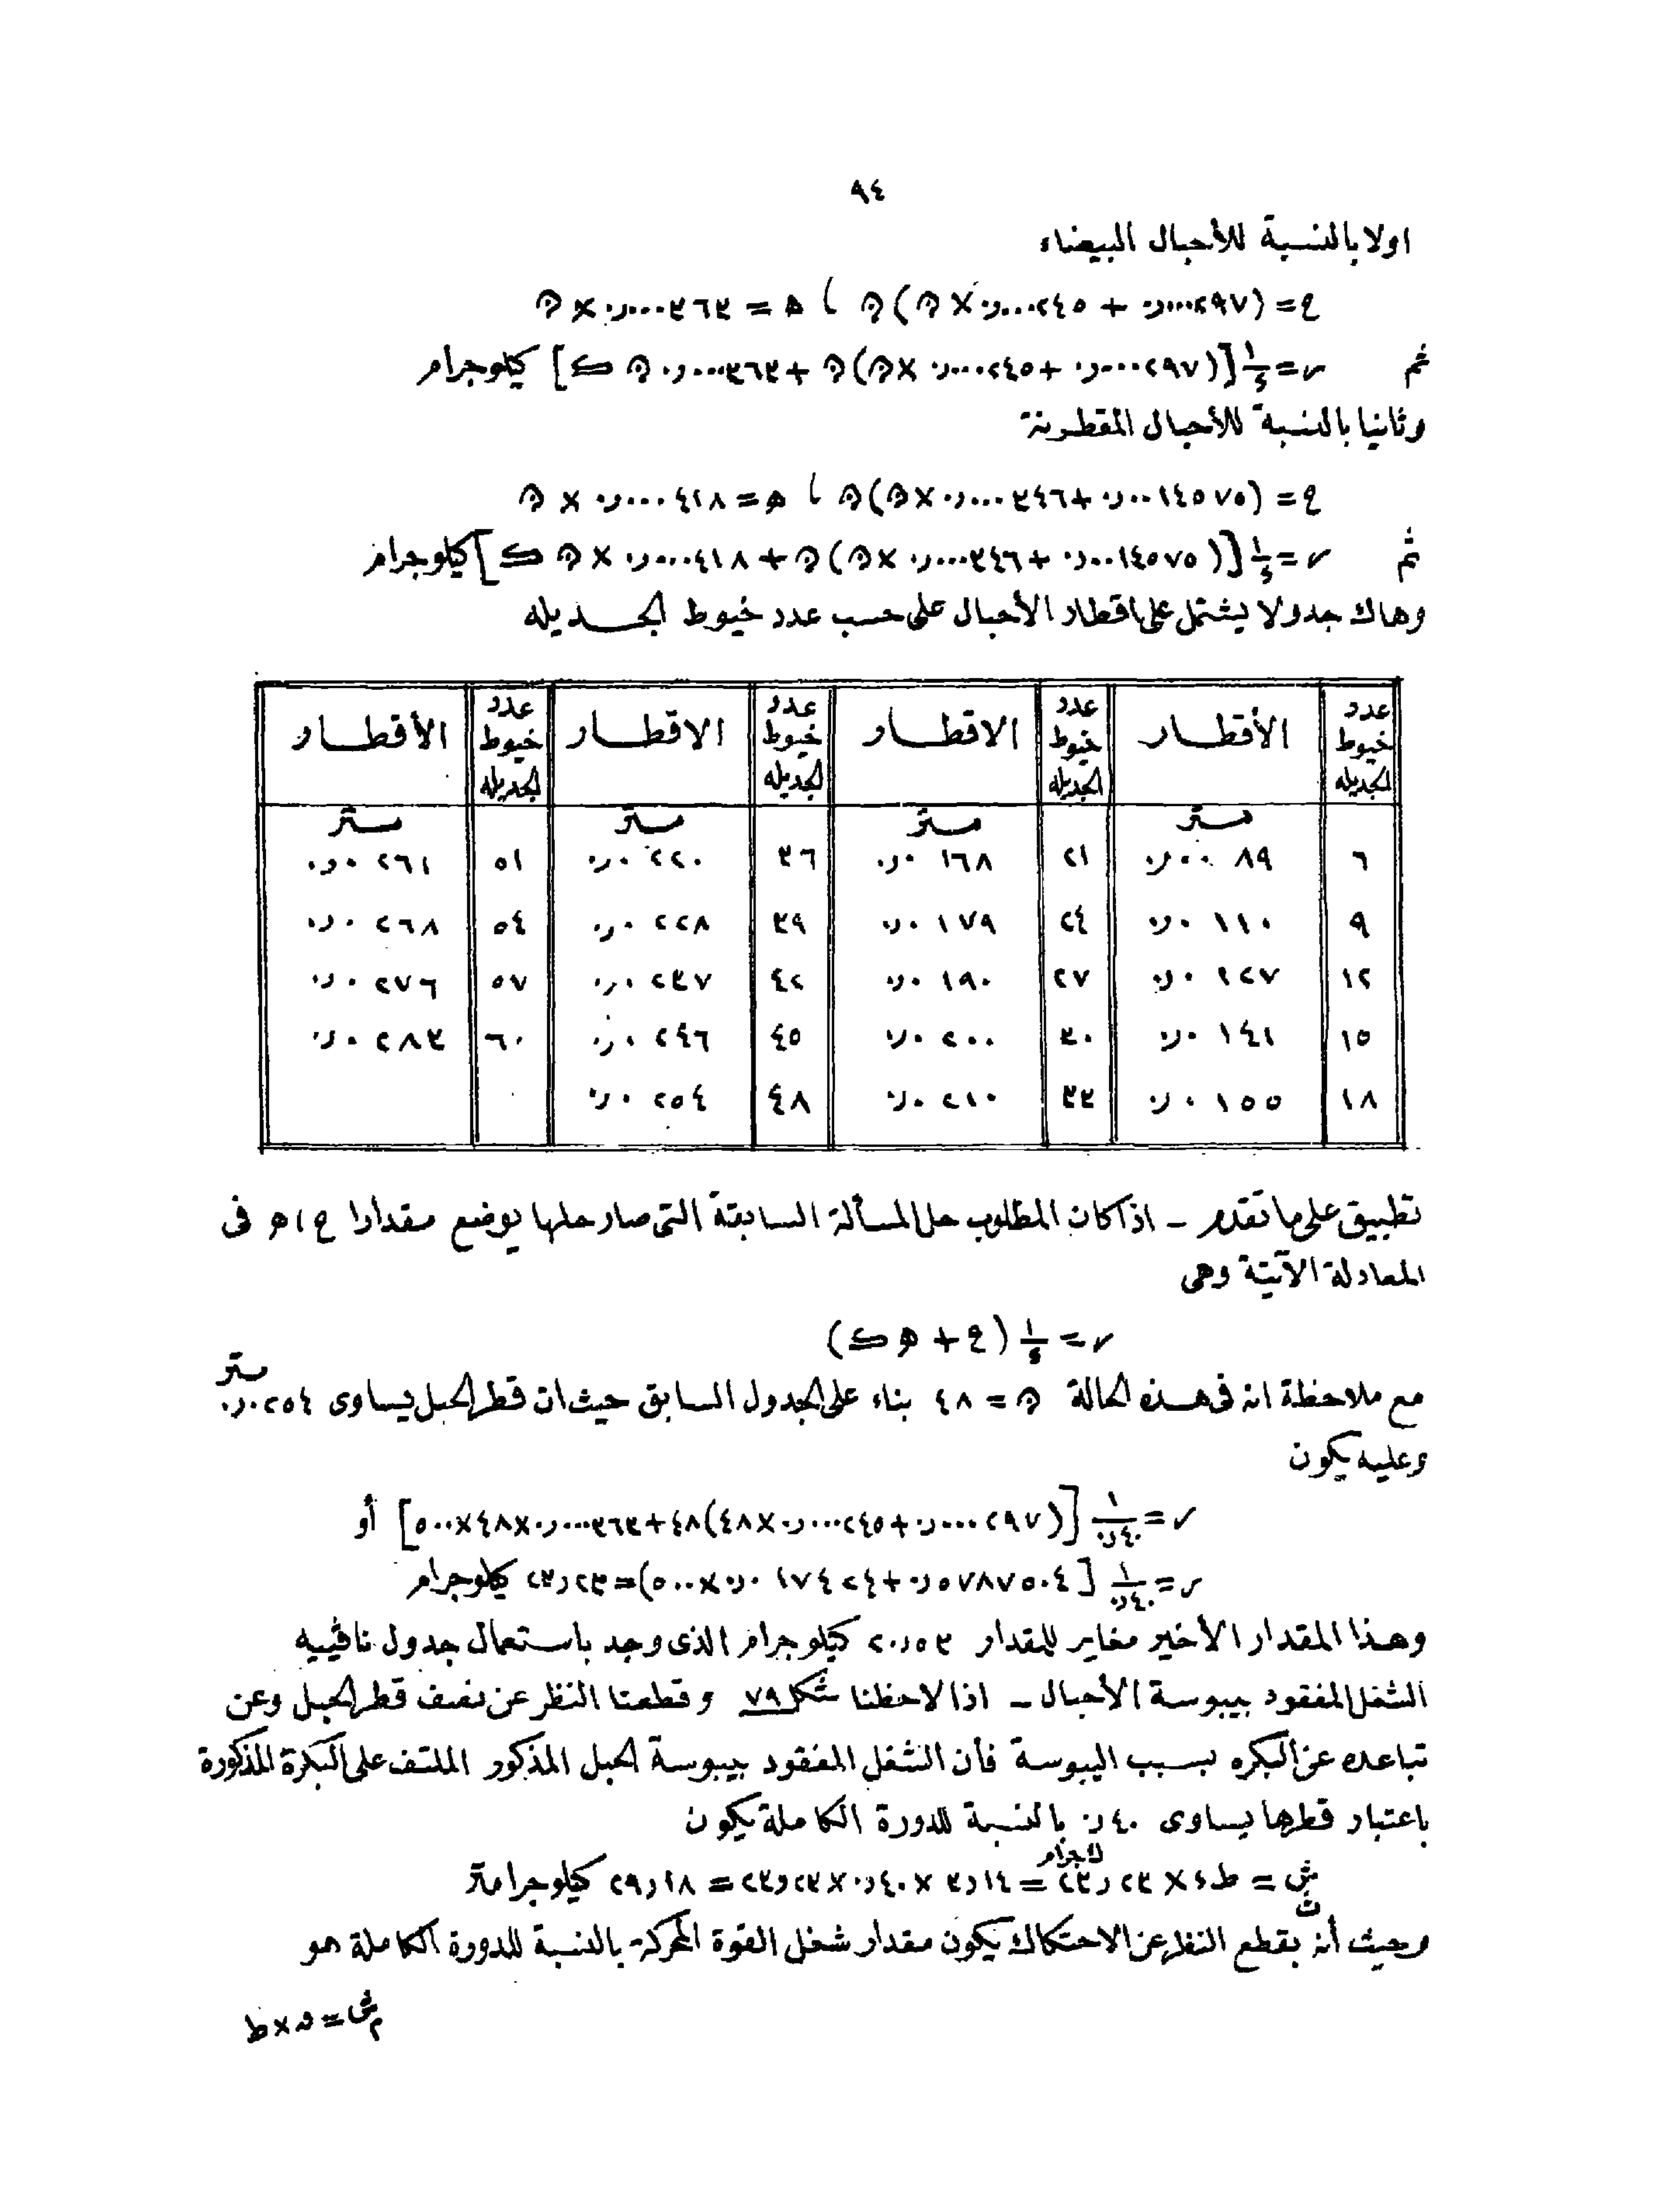 ٩٤
اولا بالنسبة للأحبال البيضاء
ع = (٠٫٠٠٠٢٩٧ + ٠٫٠٠٠٢٤٥ × ن) ن ، ه = ٠٫٠٠٠٣٦٣ × ن
ثم ر = ١/٤ [(٠٫٠٠٠٢٩٧ + ٠٫٠٠٠٢٤٥ × ن) ن + ٠٫٠٠٠٣٦٣ ن ك] كيلوجرام
وثانيا بالنسبة للأحبال المقطرنة
ع = (٠٫٠٠١٤٥٧٥ + ٠٫٠٠٠٣٤٦ × ن) ن ، ه = ٠٫٠٠٠٤١٨ × ن
ثم ر = ١/٤ [(٠٫٠٠١٤٥٧٥ + ٠٫٠٠٠٣٤٦ × ن) ن + ٠٫٠٠٠٤١٨ × ن ك] كيلوجرام
وهاك جدولا يشتمل على اقطار الأحبال على حسب عدد خيوط الجديله
عدد خيوط الجديله الأقطار عدد خيوط الجديله الاقطار عدد خيوط الجديله الاقطار عدد خيوط الجديله الأقطار
متر متر متر متر
٦ ٠٫٠٠٨٩ ٢١ ٠٫٠١٦٨ ٣٦ ٠٫٠٢٢٠ ٥١ ٠٫٠٢٦١
٩ ٠٫٠١١٠ ٢٤ ٠٫٠١٧٩ ٣٩ ٠٫٠٢٢٨ ٥٤ ٠٫٠٢٦٨
١٢ ٠٫٠١٢٧ ٢٧ ٠٫٠١٩٠ ٤٢ ٠٫٠٢٣٧ ٥٧ ٠٫٠٢٧٦
١٥ ٠٫٠١٤١ ٣٠ ٠٫٠٢٠٠ ٤٥ ٠٫٠٢٤٦ ٦٠ ٠٫٠٢٨٣
١٨ ٠٫٠١٥٥ ٣٣ ٠٫٠٢١٠ ٤٨ ٠٫٠٢٥٤
تطبيق على ما تقدم – اذا كان المطلوب حل المسألة السابقة التى صار حلها يوضع مقدارا ع ، ه فى
المعادلة الآتية وهى
ر = ١/٤ (ع + ه ك)
مع ملاحظة انه فى هذه الحالة ن = ٤٨ بناء على الجدول السابق حيث ان قطر الحبل يساوى ٠٫٠٢٥٤ متر
وعليه يكون
ر = ١/٠٫٤٠ [(٠٫٠٠٠٢٩٧ + ٠٫٠٠٠٢٤٥ × ٤٨) ٤٨ + ٠٫٠٠٠٣٦٣ × ٤٨ × ٥٠٠] أو
ر = ١/٠٫٤٠ [٠٫٥٧٨٧٥٠٤ + ٠٫٠١٧٤٢٤ × ٥٠٠) = ٢٣٫٢٢ كيلوجرام
وهذا المقدار الأخير مغاير للمقدار ٢٠٫٥٣ كيلوجرام الذى وجد باستعمال جدول نافييه
الشغل المفقود بيبوسة الأحبال – اذا لاحظنا شكل ٧٩ وقطعنا النظر عن نصف قطر الحبل وعن
تباعده عن البكره بسبب اليبوسة فأن الشغل المفقود بيبوسة الحبل المذكور الملتف على البكرة المذكورة
باعتبار قطرها يساوى ٠٫٤٠ بالنسبة للدورة الكاملة يكون
ش = ط ٤ × ٢٣٫٢٣ ك جرام = ٣٫١٤ × ٠٫٤٠ × ٢٣٫٢٣ = ٢٩٫١٨ كيلوجرامتر
وحيث أنه بقطع النظر عن الاحتكاك يكون مقدار شغل القوة المحركة بالنسبة للدورة الكاملة هو
ش م = ق × ط